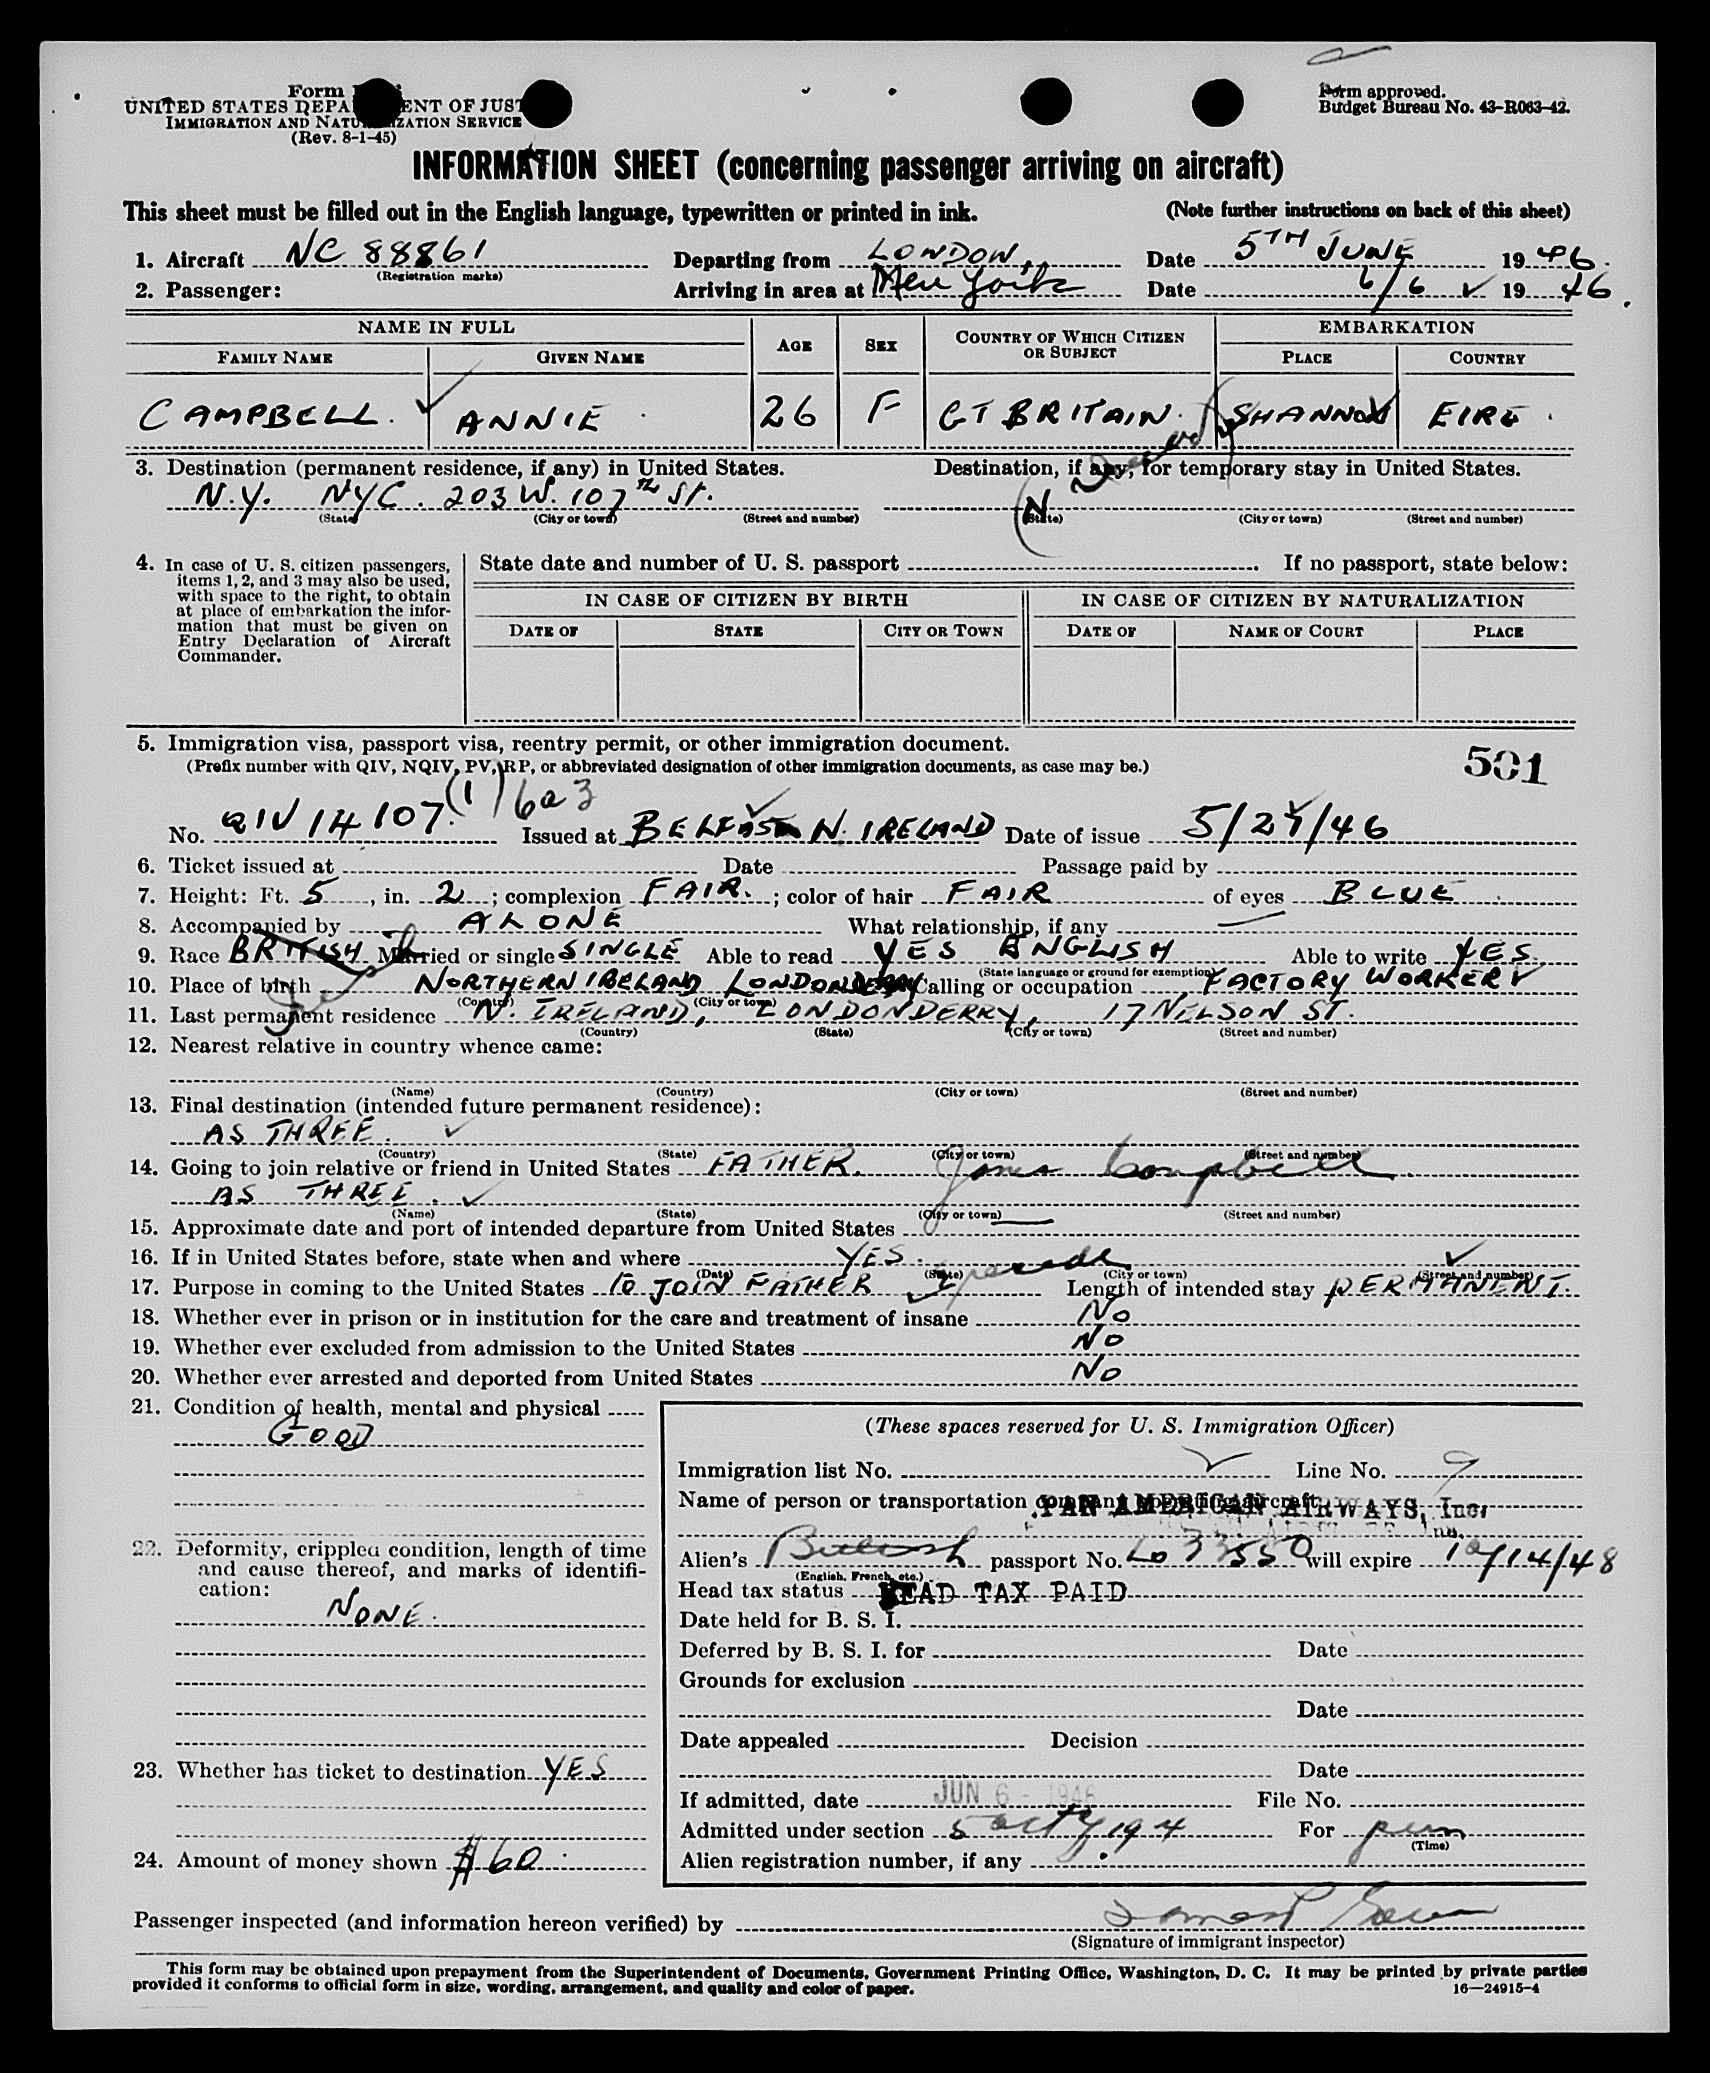 Form
UNITED STATES DEPA ENT OF JUST
IMMIGRATION AND NATU IZATION SERVICE
(Rev. 8-1-45)
Form approved.
Budget Bureau No. 43-R063-42.
INFORMATION SHEET (concerning passenger arriving on aircraft)
This sheet must be filled out in the English language, typewritten or printed in ink. (Note further instructions on back of this sheet)
1. Aircraft NC 88861 Departing from LONDON, Date 5TH JUNE 1946.
(Registration marks)
2. Passenger: Arriving in area at New York Date 6/6 1946.
NAME IN FULL AGE SEX COUNTRY OF WHICH CITIZEN OR SUBJECT EMBARKATION
FAMILY NAME GIVEN NAME PLACE COUNTRY
CAMPBELL. ANNIE 26 F GT BRITAIN. SHANNON EIRE
3. Destination (permanent residence, if any) in United States. Destination, if any, for temporary stay in United States.
N.Y. NYC. 203 W. 107th St. N
(State) (City or town) (Street and number) (State) (City or town) (Street and number)
4. In case of U. S. citizen passengers, items 1, 2, and 3 may also be used, with space to the right, to obtain at place of embarkation the information that must be given on Entry Declaration of Aircraft Commander.
State date and number of U. S. passport If no passport, state below:
IN CASE OF CITIZEN BY BIRTH IN CASE OF CITIZEN BY NATURALIZATION
DATE OF STATE CITY OR TOWN DATE OF NAME OF COURT PLACE
5. Immigration visa, passport visa, reentry permit, or other immigration document.
(Prefix number with QIV, NQIV, PV, RP, or abbreviated designation of other immigration documents, as case may be.)
501
(1) 6a3
No. QIV 14107. Issued at BELFAST N. IRELAND Date of issue 5/27/46
6. Ticket issued at Date Passage paid by
7. Height: Ft. 5, in. 2; complexion FAIR.; color of hair FAIR of eyes BLUE
8. Accompanied by ALONE What relationship, if any —
9. Race BRITISH Married or single SINGLE Able to read YES ENGLISH Able to write YES
(State language or ground for exemption)
10. Place of birth NORTHERN IRELAND LONDONDERRY Calling or occupation FACTORY WORKER
(Country) (City or town)
11. Last permanent residence N. IRELAND, LONDONDERRY, 17 NELSON ST.
(Country) (State) (City or town) (Street and number)
12. Nearest relative in country whence came:
(Name) (Country) (City or town) (Street and number)
13. Final destination (intended future permanent residence):
AS THREE.
(Country) (State) (City or town) (Street and number)
14. Going to join relative or friend in United States FATHER. James Campbell
AS THREE.
(Name) (State) (City or town) (Street and number)
15. Approximate date and port of intended departure from United States —
16. If in United States before, state when and where YES.
(Date) (State) (City or town) (Street and number)
17. Purpose in coming to the United States TO JOIN FATHER Length of intended stay PERMANENT.
18. Whether ever in prison or in institution for the care and treatment of insane NO
19. Whether ever excluded from admission to the United States NO
20. Whether ever arrested and deported from United States NO
21. Condition of health, mental and physical
GOOD
22. Deformity, crippled condition, length of time and cause thereof, and marks of identification:
NONE.
23. Whether has ticket to destination YES
24. Amount of money shown $60
(These spaces reserved for U. S. Immigration Officer)
Immigration list No. Line No. 9
Name of person or transportation company operating aircraft
PAN AMERICAN AIRWAYS, Inc.
Alien's British passport No. Lo 33550 will expire 10/14/48
(English, French, etc.)
Head tax status HEAD TAX PAID
Date held for B. S. I.
Deferred by B. S. I. for Date
Grounds for exclusion
Date
Date appealed Decision
Date
If admitted, date JUN 6 - 1946 File No.
Admitted under section 5 act of 1924 For perm
(Time)
Alien registration number, if any
Passenger inspected (and information hereon verified) by
(Signature of immigrant inspector)
This form may be obtained upon prepayment from the Superintendent of Documents, Government Printing Office, Washington, D. C. It may be printed by private parties
provided it conforms to official form in size, wording, arrangement, and quality and color of paper.
16—24915-4